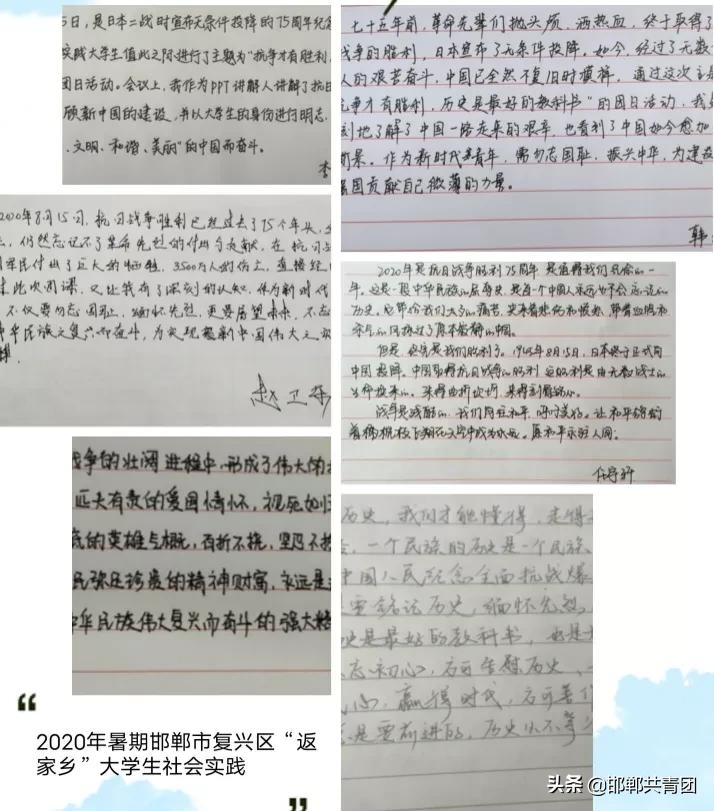 5日,是日本二战时宣布无条件投降的75周年纪念
实践大学生值此之际进行了主题为"抗争才有胜利,
团日活动。会议上,我作为PPT讲解人讲解了抗日
顾新中国的建设,并以大学生的身份进行明志,
、文明、和谐、美丽"的中国而奋斗。
李
七十五年前,革命先辈们抛头颅、洒热血,终于取得了
战争的胜利,日本宣布了无条件投降。如今,经过了无数
人的艰苦奋斗,中国已全然不复旧时模样。通过这次主题
抗争才有胜利,历史是最好的教科书"的团日活动,我
刻地了解了中国一路走来的艰辛,也看到了中国如今愈加
景。作为新时代青年,需勿忘国耻、振兴中华,为建设
强国贡献自己微薄的力量。
韩
2020年8月15日,抗日战争胜利已经过去了75个年头,
,仍然忘记不了革命先烈的付出与贡献,在抗日
军民付出了巨大的牺牲,3500万人的伤亡,直接经
此次团课,又让我有了深刻的认知,作为新时代
不仅要勿忘国耻,缅怀先烈,更要展望未来,不忘
华民族之复兴而奋斗,为实现新中国伟大之
赵卫
2020年是抗日战争胜利75周年 是值得我们纪念的一
年。这是一段中华民族的屈辱史,是每个中国人永远也不会忘记的
历史,它带给我们太多的痛苦,夹杂着悲伤和愤怒,带着血腥和
但是,终究是我们胜利了。1945年8月15日,日本终于正式向
中国投降。中国取得抗日战争的胜利 这胜利是由无数战士的
生命换来的,来得曲折坎坷,来得刻骨铭心。
战争是残酷的,我们向往和平,呼吁美好。让和平鸽衔
着橄榄枝飞翔在天空中成为永远。愿和平永驻人间。
任
战争的壮阔进程中,形成了伟大的抗
匹夫有责的爱国情怀,视死如归
底的英雄气概,百折不挠,坚忍不拔
民弥足珍贵的精神财富,永远是
中华民族伟大复兴而奋斗的强大精
历史,我们才能懂得,走得
,一个民族的历史是一个民族
中国人民纪念全面抗战爆
要铭记历史,缅怀先烈。
史是最好的教科书,也是
忘初心,方可告慰历史、
心,赢得时代,方可善
是要前进的,历史从不等
“
2020年暑期邯郸市复兴区“返
家乡”大学生社会实践
”
头条 @邯郸共青团